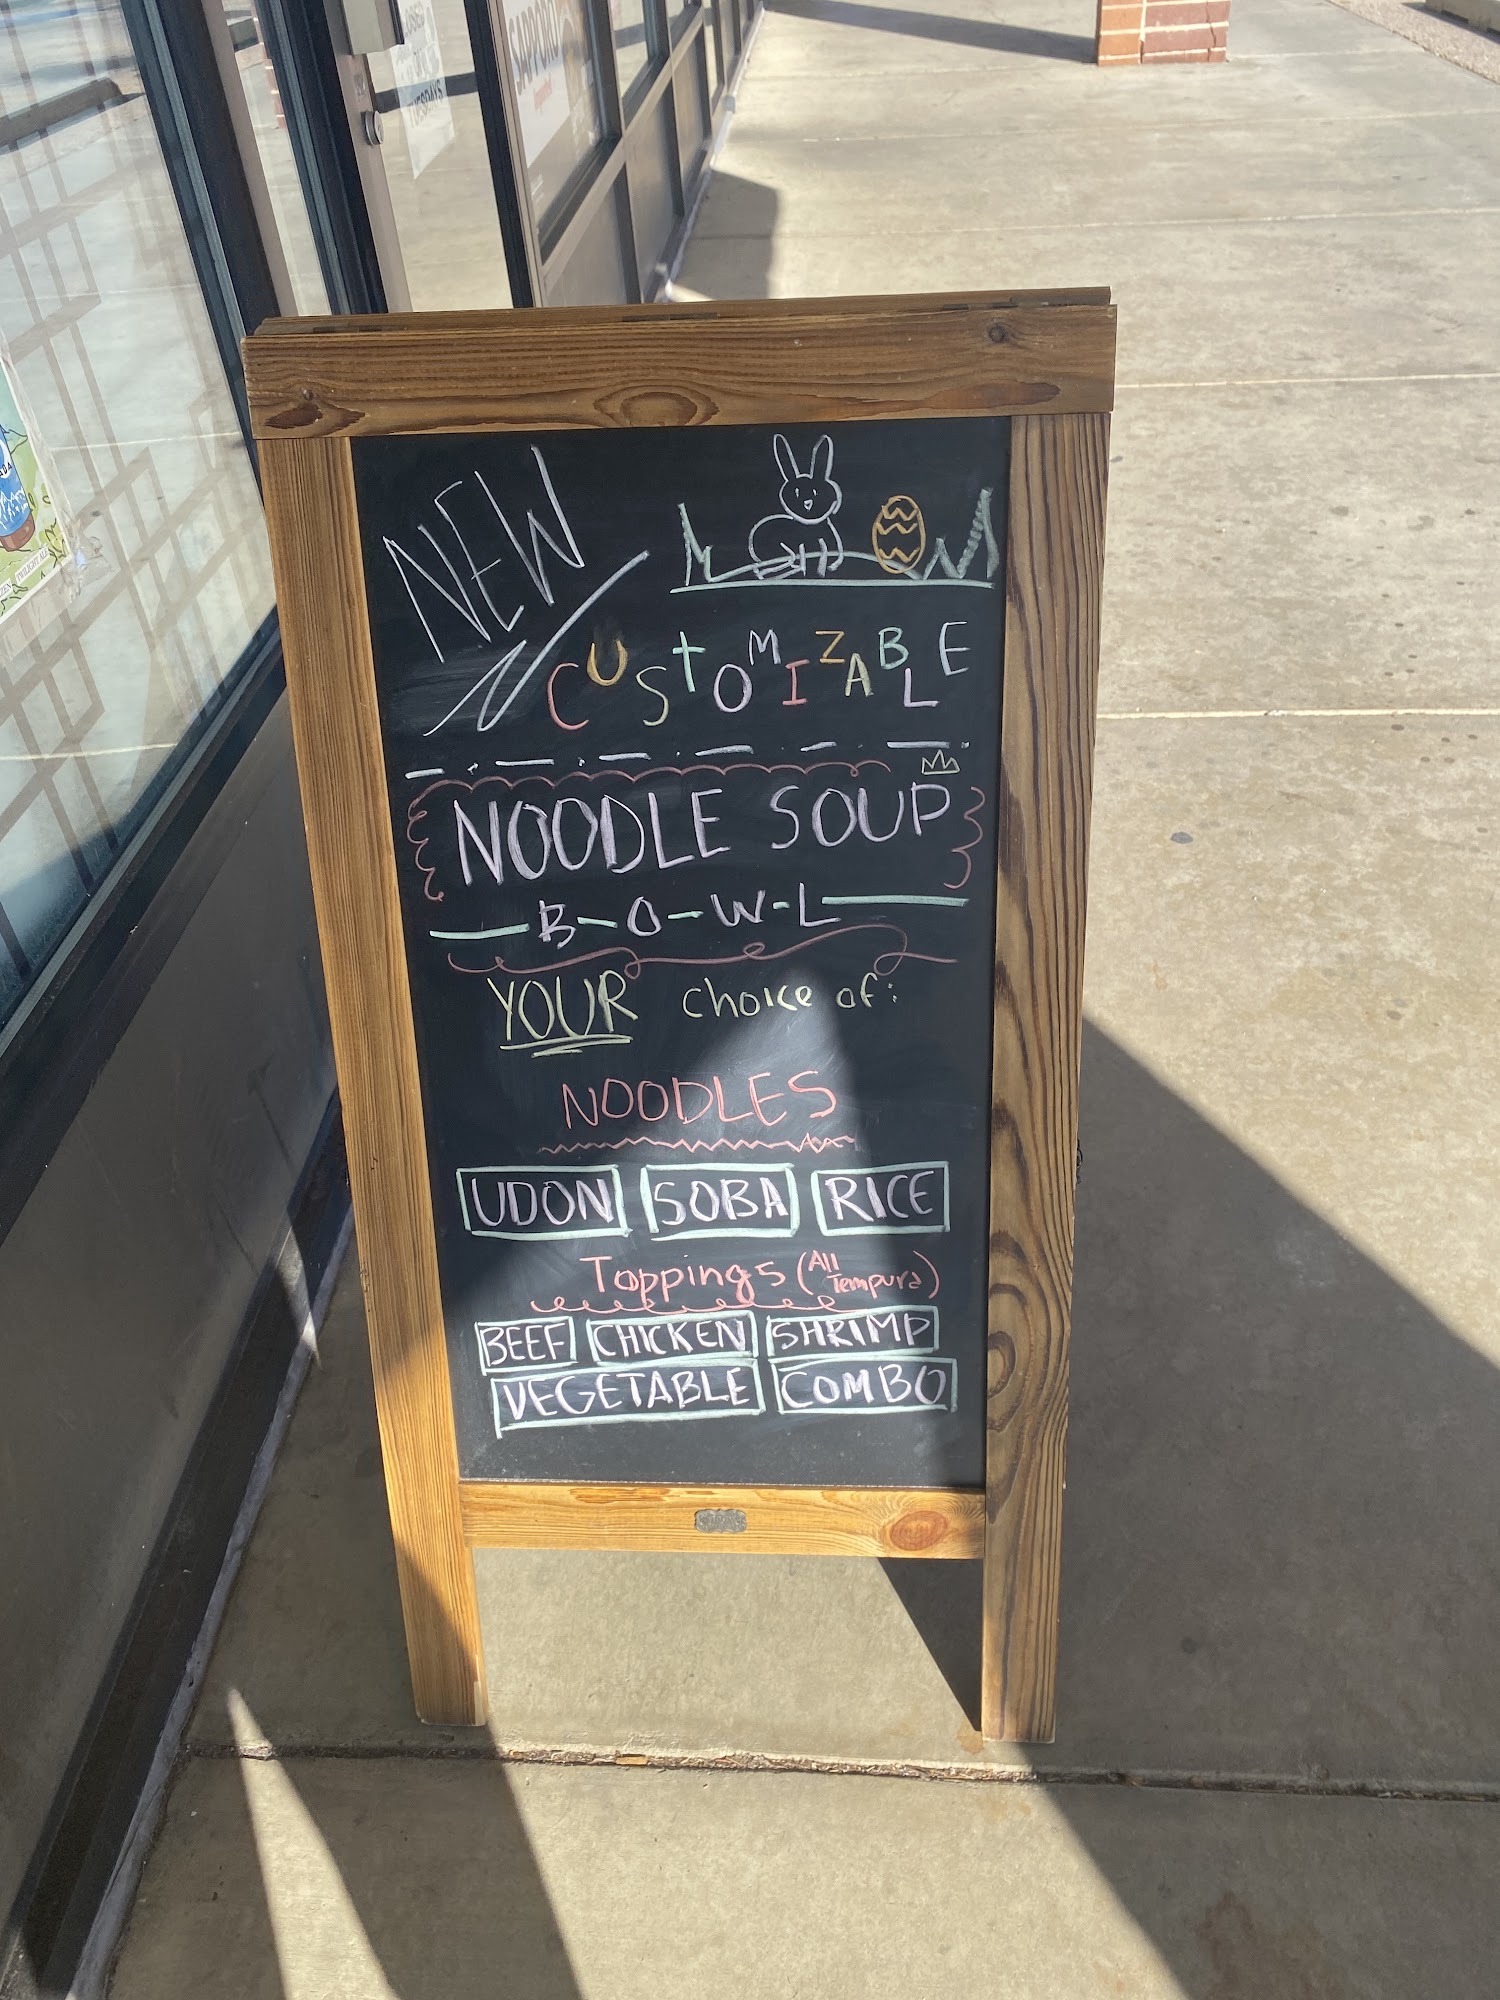 SAPPORO
TUESDAYS
TWILIGHT ALE
NEW
CUStOMIZABLE
NOODLE SOUP
B-O-W-L
YOUR choice of:
NOODLES
UDON SOBA RICE
Toppings (All Tempura)
BEEF CHICKEN SHRIMP
VEGETABLE COMBO